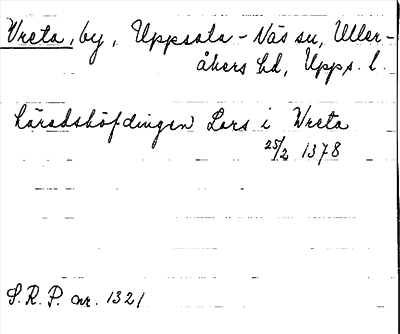 Vreta, by, Uppsala-Näs sn, Uller-
åkers hd, Upps. l.
häradshöfdingen Lars i Wreta
25/2 1378
S.R.P. nr. 1321